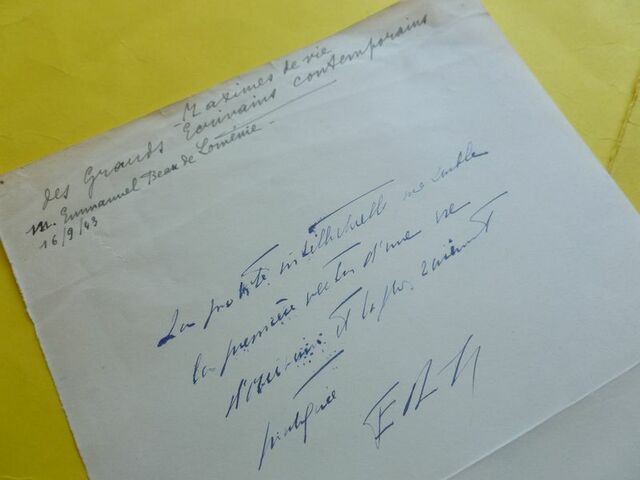 Maximes de vie
des Grands Ecrivains contemporains
M. Emmanuel Beau de Loménie
16/9/43
La probité intellectuelle me semble
la première vertu d'une vie
d'écrivain et la plus rarement
pratiquée